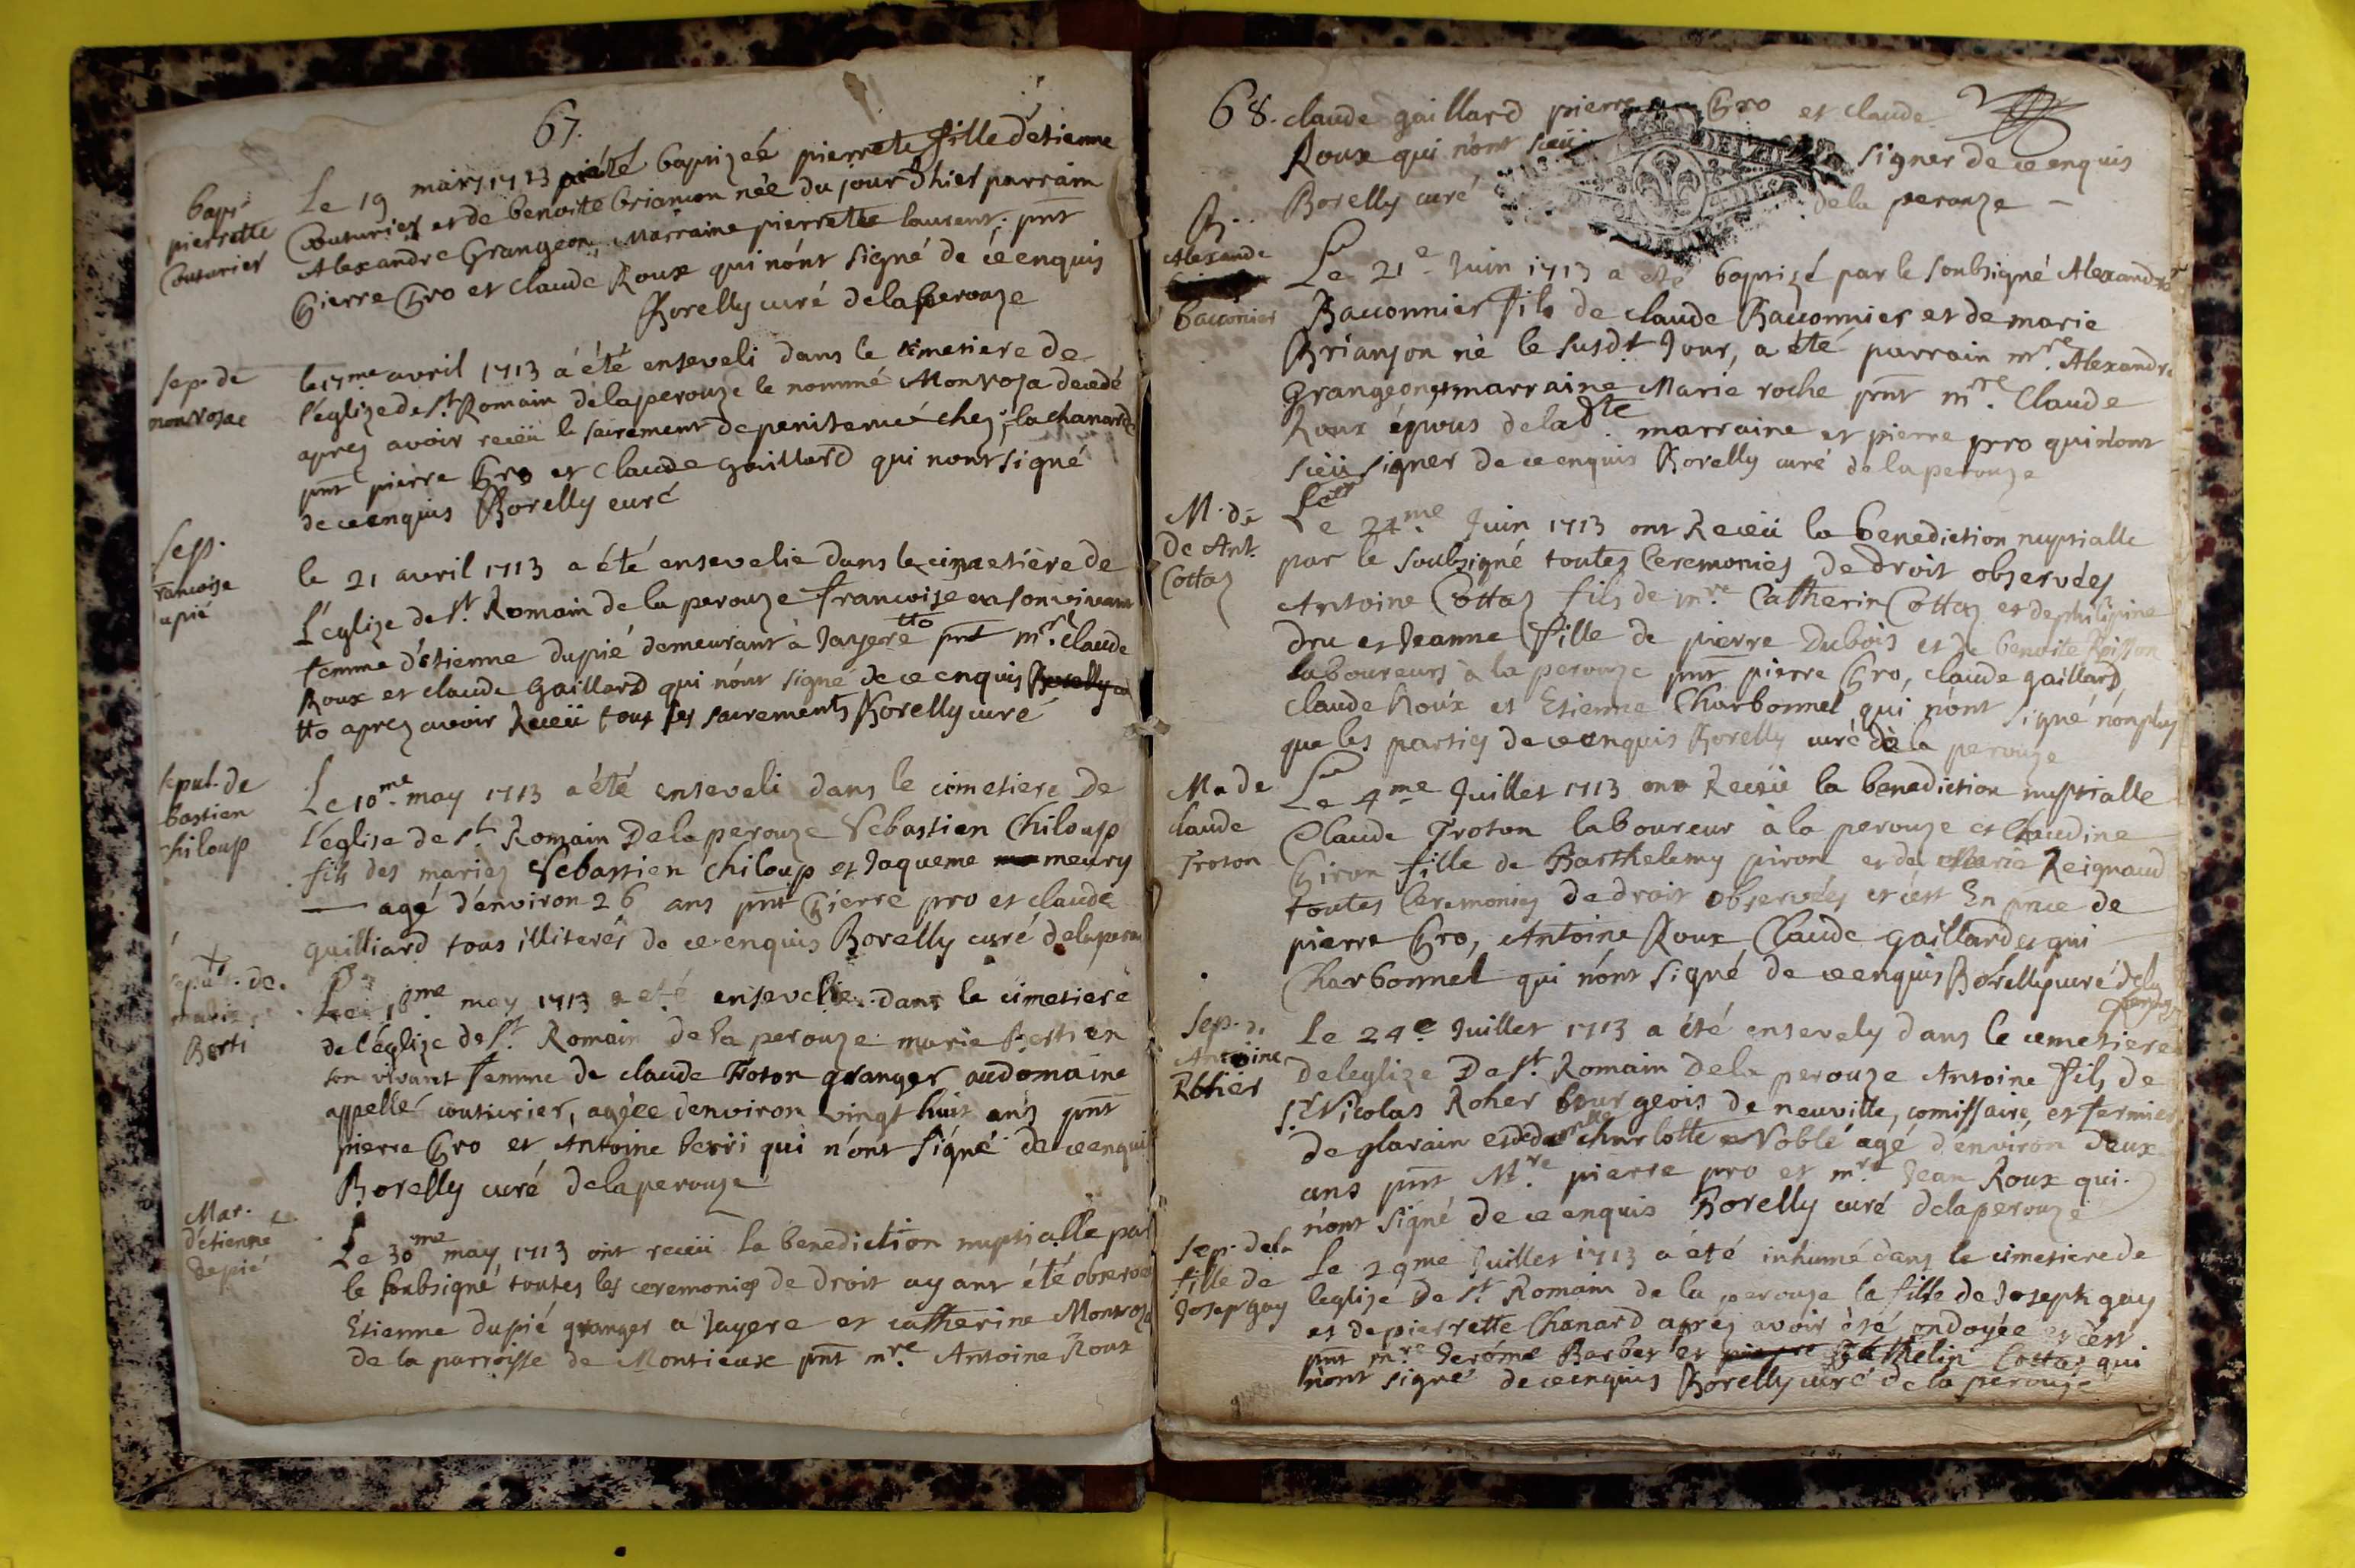 67.
bapt
pierrette
Couturier
Le 19 mars 1713 a été baptizeé pierrete fille d'etienne
Couturier et de benoite briancon née du jour d'hier parrain
Alexandre Grangeon, Marraine pierrette laurent, pnt
Pierre Pro et Claude Roux qui n'ont signé de ce enquis
Borelly curé dela perouze
sep. de
monvosae
le 17me avril 1713 a été enseveli dans le cimetiere de
l'eglize de St. Romain dela perouze le nommé Monvosa decedé
aprez avoir receü le sacrement de penitence chez la chanard
pnt pierre Pro et Claude gaillard qui nont signé
de ce enquis Borelly curé
sep.
francoise
upié
le 21 avril 1713 a été ensevelie dans le cimetière de
l'eglize de St. Romain de la perouze francoise en son vivant
femme d'etienne dupié demeurant à Jayere tto pnt mre. Claude
Roux et claude Gaillard qui n'ont signé de ce enquis Borelly
tto aprez avoir Receü tous les sacrements Borelly curé
sepul. de
bastien
chiloup
Le 10me. may 1713 a été enseveli dans le cimetiere De
l'église de St. Romain Dela perouze Sebastien Chiloup
fils des mariez Sebastien Chiloup et Jaqueme meury
agé d'environ 26 ans pnt Pierre pro et claude
guilliard tous illiterés de ce enquis Borelly curé dela pero
sepul. de
marie
Berti
Le 18me may 1713 a eté ensevelie dans le cimetiere
de l'églize de St. Romain de la perouze marie berti en
son vivant femme de claude Troton granger au domaine
appellé couturier, agée d'environ vingt huit ans pnt
pierre Pro et Antoine berti qui n'ont signé de ce enquis
Borelly curé dela perouze
Mar.
d'etienne
dupié
Le 30me may 1713 ont receü la benediction nuptialle par
le soubsigné, toutes les ceremonies de droit ayant été observées
Etienne dupié granger a Jayere et catherine Monvosa
de la parroisse de Montieux pnt mre. Antoine Roux
68. claude gaillard pierre Pro et claude
Roux qui n'ont sceü signer de ce enquis
Borelly curé dela perouze
B.
Alexandre
baconier
Le 21e. Juin 1713 a été baptizé par le soubsigné Alexandre
Baconnier fils de claude Baconnier et de marie
Brianson né le susdt Jour, a été parrain mre. Alexandre
Grangeon, et marraine Marie roche pnt mre. Claude
Roux épous dela dte. marraine et pierre pro qui n'ont
sceü signer de ce enquis Borelly curé dela perouze
M. de
De Ant.
Cottaz
Le 24me. Juin 1713 ont Receü la benediction nuptialle
par le soubsigné toutes Ceremonies de droit observées
Antoine Cottaz fils de mre. Catherin Cottaz et de philipine
dru et Jeanne fille de pierre Dubois et de benoite
laboureurs à la perouze pnt pierre Pro, claude gaillard,
claude Roux et Etienne Charbonnel qui n'ont signé n'on plus
que les parties de ce enquis Borelly curé dela perouze
Ma de
claude
Troton
Le 4me Juillet 1713 ont Receü la benediction nuptialle
Claude Troton laboureur à la perouze et Claudine
Piron fille de Barthelemy piron et de Marie Reignaud
toutes Ceremonies de droit observées et c'est En pnce de
pierre Pro, Antoine Roux Claude gaillard et gui
Charbonnel qui n'ont signé de ce enquis Borelly curé dela
perouze
Sep. d.
Antoine
Rohier
Le 24e Juillet 1713 a été ensevely dans le cemetiere
de leglize De St. Romain Dela perouze Antoine fils de
Sr. Nicolas Roher bourgeois de neuville, comissaire, et fermier
de glarain et de dmlle charlotte Noblé agé d'environ deux
ans pnt Mre. pierre pro et mre Jean Roux qui
n'ont signé de ce enquis Borelly curé dela perouze
Sep. dela
fille de
Josep gay
Le 29me Juillet 1713 a été inhumé dans le cimetiere de
leglize De St. Romain de la perouze la fille de Joseph gay
et de pierrette Chanard aprés avoir été ondoyée et c'est
pnt mre Jerome Barbet et Cathelin Cottaz qui
n'ont signé de ce enquis Borelly curé de la perouze